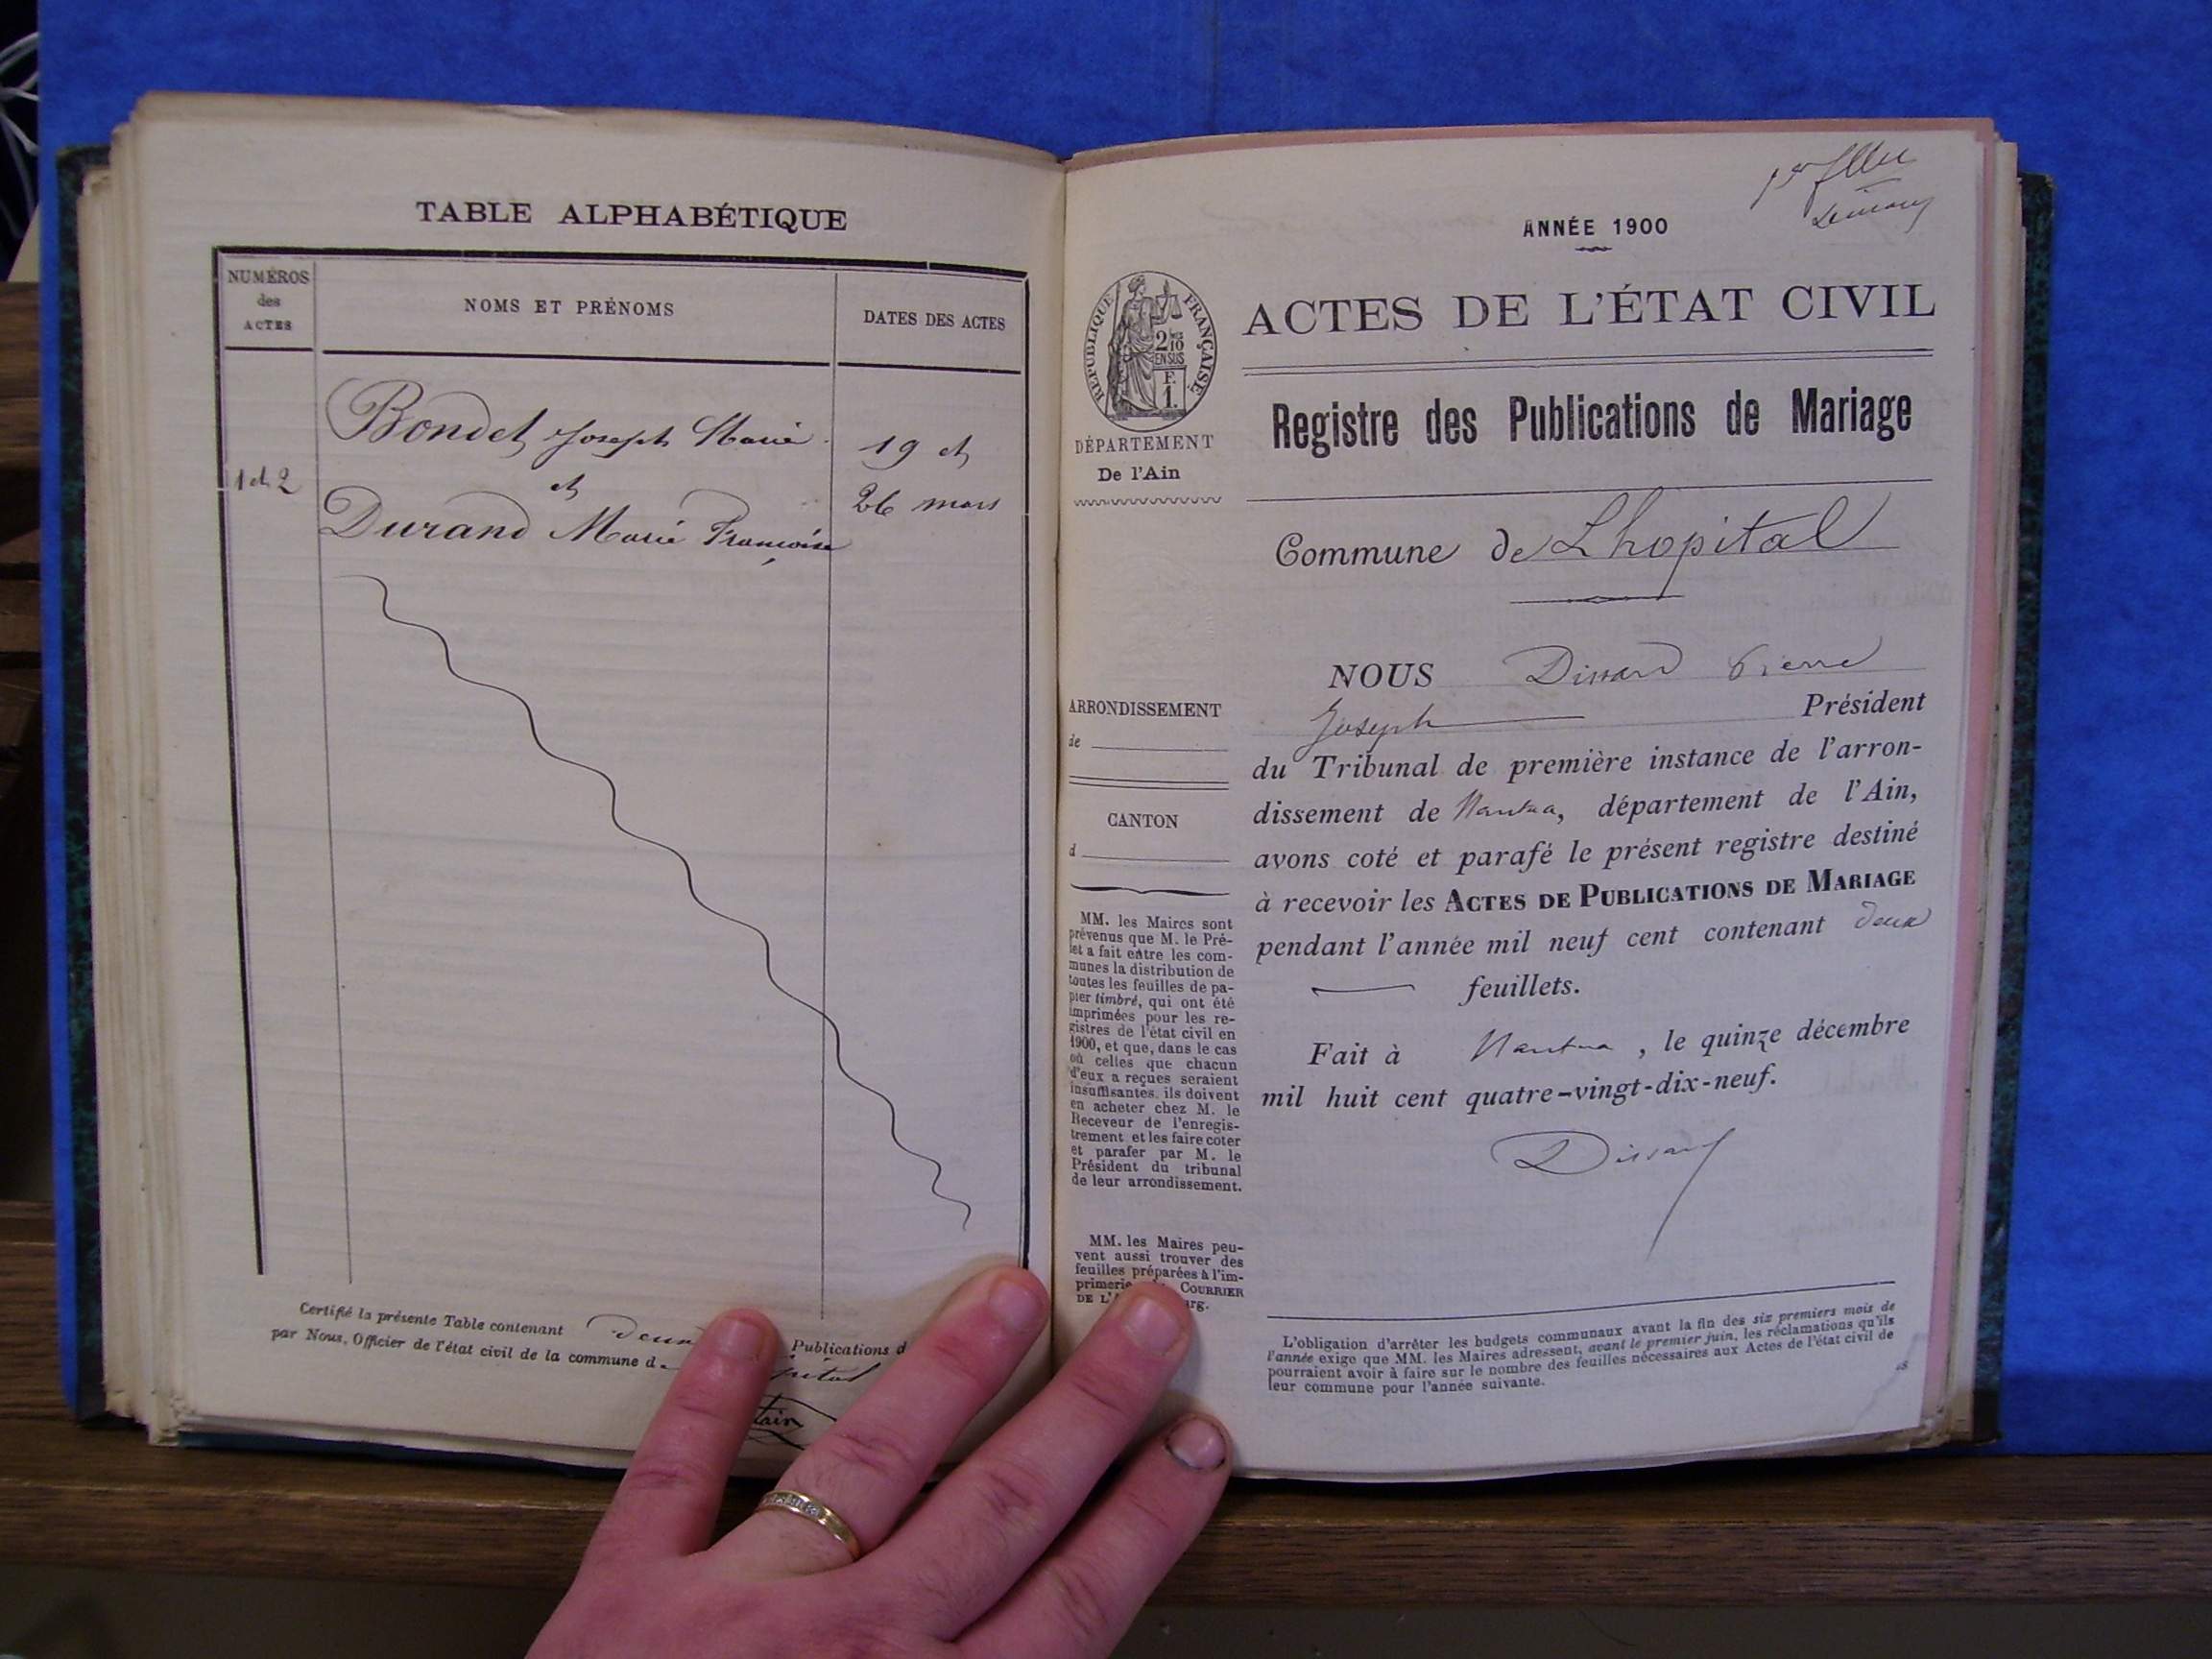 TABLE ALPHABÉTIQUE
NUMÉROS
des
ACTES
NOMS ET PRÉNOMS
DATES DES ACTES
Bondet Joseph Marie
1 et 2
et
Durand Marie Françoise
19 et
26 mars
Certifié la présente Table contenant deux Publications d
par Nous, Officier de l'état civil de la commune d
1er
ANNÉE 1900
RÉPUBLIQUE FRANÇAISE
2/10
EN SUS
F.
1.
DÉPARTEMENT
De l'Ain
ACTES DE L'ÉTAT CIVIL
Registre des Publications de Mariage
Commune de Lhopital
ARRONDISSEMENT
de
CANTON
d
MM. les Maires sont
prévenus que M. le Pré-
fet a fait entre les com-
munes la distribution de
toutes les feuilles de pa-
pier timbré, qui ont été
imprimées pour les re-
gistres de l'état civil en
1900, et que, dans le cas
où celles que chacun
d'eux a reçues seraient
insuffisantes, ils doivent
en acheter chez M. le
Receveur de l'enregis-
trement et les faire coter
et parafer par M. le
Président du tribunal
de leur arrondissement.
MM. les Maires peu-
vent aussi trouver des
feuilles préparées à l'im-
primerie COURRIER
DE L'
NOUS Dissard Pierre
Joseph Président
du Tribunal de première instance de l'arron-
dissement de Nantua, département de l'Ain,
avons coté et parafé le présent registre destiné
à recevoir les ACTES DE PUBLICATIONS DE MARIAGE
pendant l'année mil neuf cent contenant deux
feuillets.
Fait à Nantua, le quinze décembre
mil huit cent quatre-vingt-dix-neuf.
Dissard
L'obligation d'arrêter les budgets communaux avant la fin des six premiers mois de
l'année exige que MM. les Maires adressent, avant le premier juin, les réclamations qu'ils
pourraient avoir à faire sur le nombre des feuilles nécessaires aux Actes de l'état civil de
leur commune pour l'année suivante.